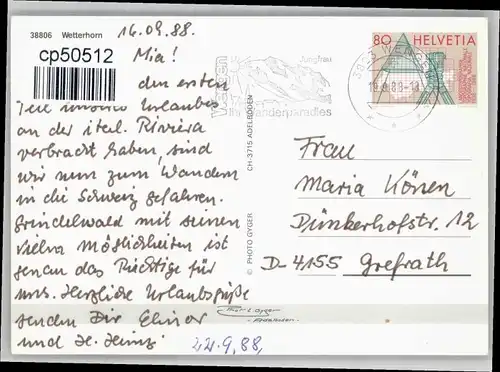 38806 Wetterhorn
16.09.88.
cp50512
Mia!
den ersten
Teil unseres Urlaubes
an der ital. Riviera
verbracht haben, sind
wir nun zum Wandern
in die Schweiz gefahren.
Grindelwald mit seinen
vielen Möglichkeiten ist
genau das Richtige für
uns. Herzliche Urlaubsgrüße
senden Dir Elinor
und H. Heinz
22.9.88,
CH-3715 ADELBODEN
© PHOTO GYGER
Wengen
Jungfrau
Ihr Wanderparadies
3823 WENGEN
80 HELVETIA
Frau
Maria Könen
Dünkerhofstr. 12
D-4155 Grefrath
Gyger
Adelboden